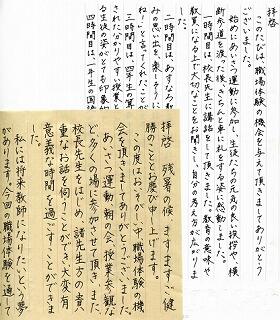 拝啓
このたびは、職場体験の機会を与えて頂きましてありがとうございました。
始めにあいさつ運動に参加し、生徒たちの元気の良い挨拶や、横
断歩道を渡った後、きちんと車に礼をする姿に感動しました。
一時間目は、校長先生に講話をして頂きました。教育の意味や
教員になる上で大切なことをお聞きし、自分の考え方が広がりま
三時間目は、四年生の算
された分かりやすい授業
る生徒の姿がとても印象的
四時間目は、一年生の国語
拝啓 残暑の候 ますますご健
勝のこととお慶び申し上げます。
この度はお忙しい中、職場体験の機
会を頂きましてありがとうございました。
あいさつ運動、朝の会、授業参観な
ど多くの場に参加させて頂きました。
校長先生をはじめ、諸先生方の貴
重なお話を伺うことができ、大変有
意義な時間を過ごすことができま
した。
私には将来教師になりたいという夢
があります。今回の職場体験を通して